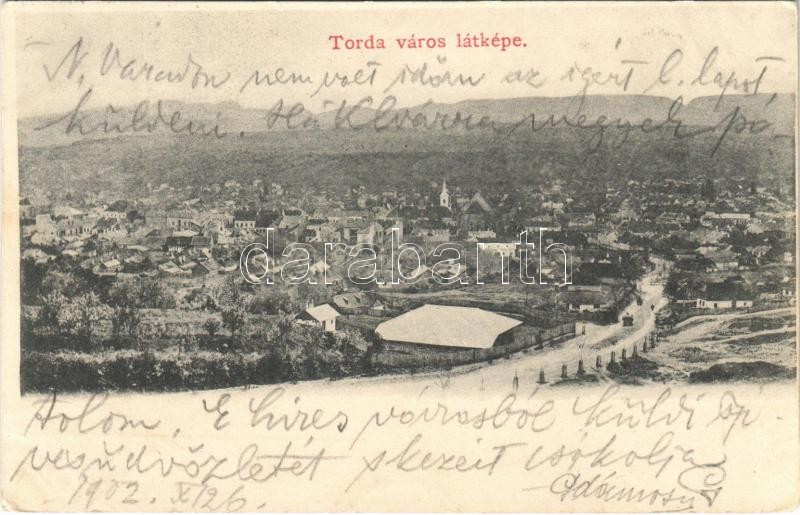 Torda város látképe.
N. Varadon nem volt időm az igért l. lapot
küldeni. Ha Klvárra megyek pó-
tolom. E híres városból küldi szí-
vesüdvözletét s kezeit csókolja
1902. XI/26. Adámosy
darabanth